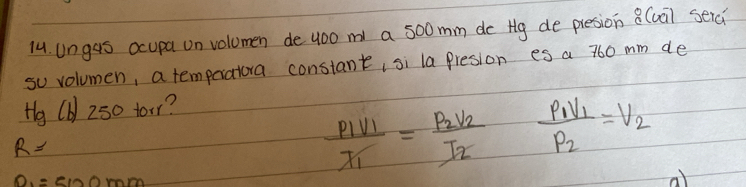 14. Un gas ocupa un volumen de 400 ml a 500 mm de Hg de presión ¿Cuál será
su volumen, a temperatura constante, si la presion es a 760 mm de
Hg (b) 250 torr?
R=
P1V1/T1 = P2V2/T2    P1V1/P2 = V2
P1 = 500 mm
a)